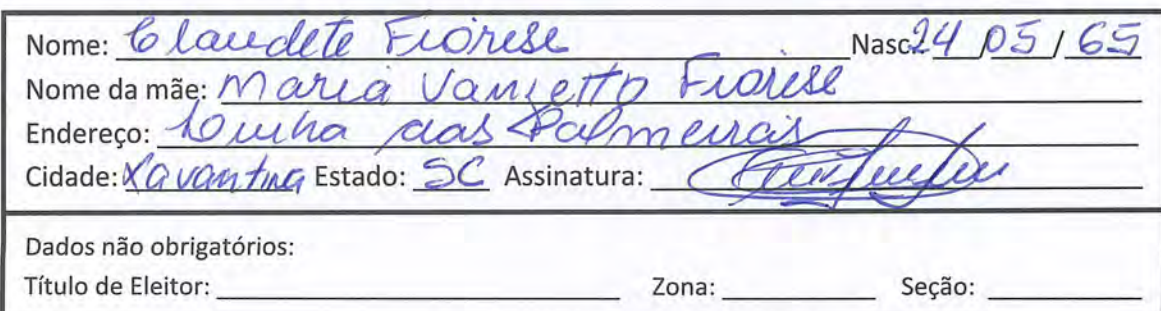 Nome: Claudete Fiorese Nasc: 24/05/65
Nome da mãe: Maria Vanzetto Fiorese
Endereço: Linha das Palmeiras
Cidade: Xavantina Estado: SC Assinatura:
Dados não obrigatórios:
Título de Eleitor: Zona: Seção: